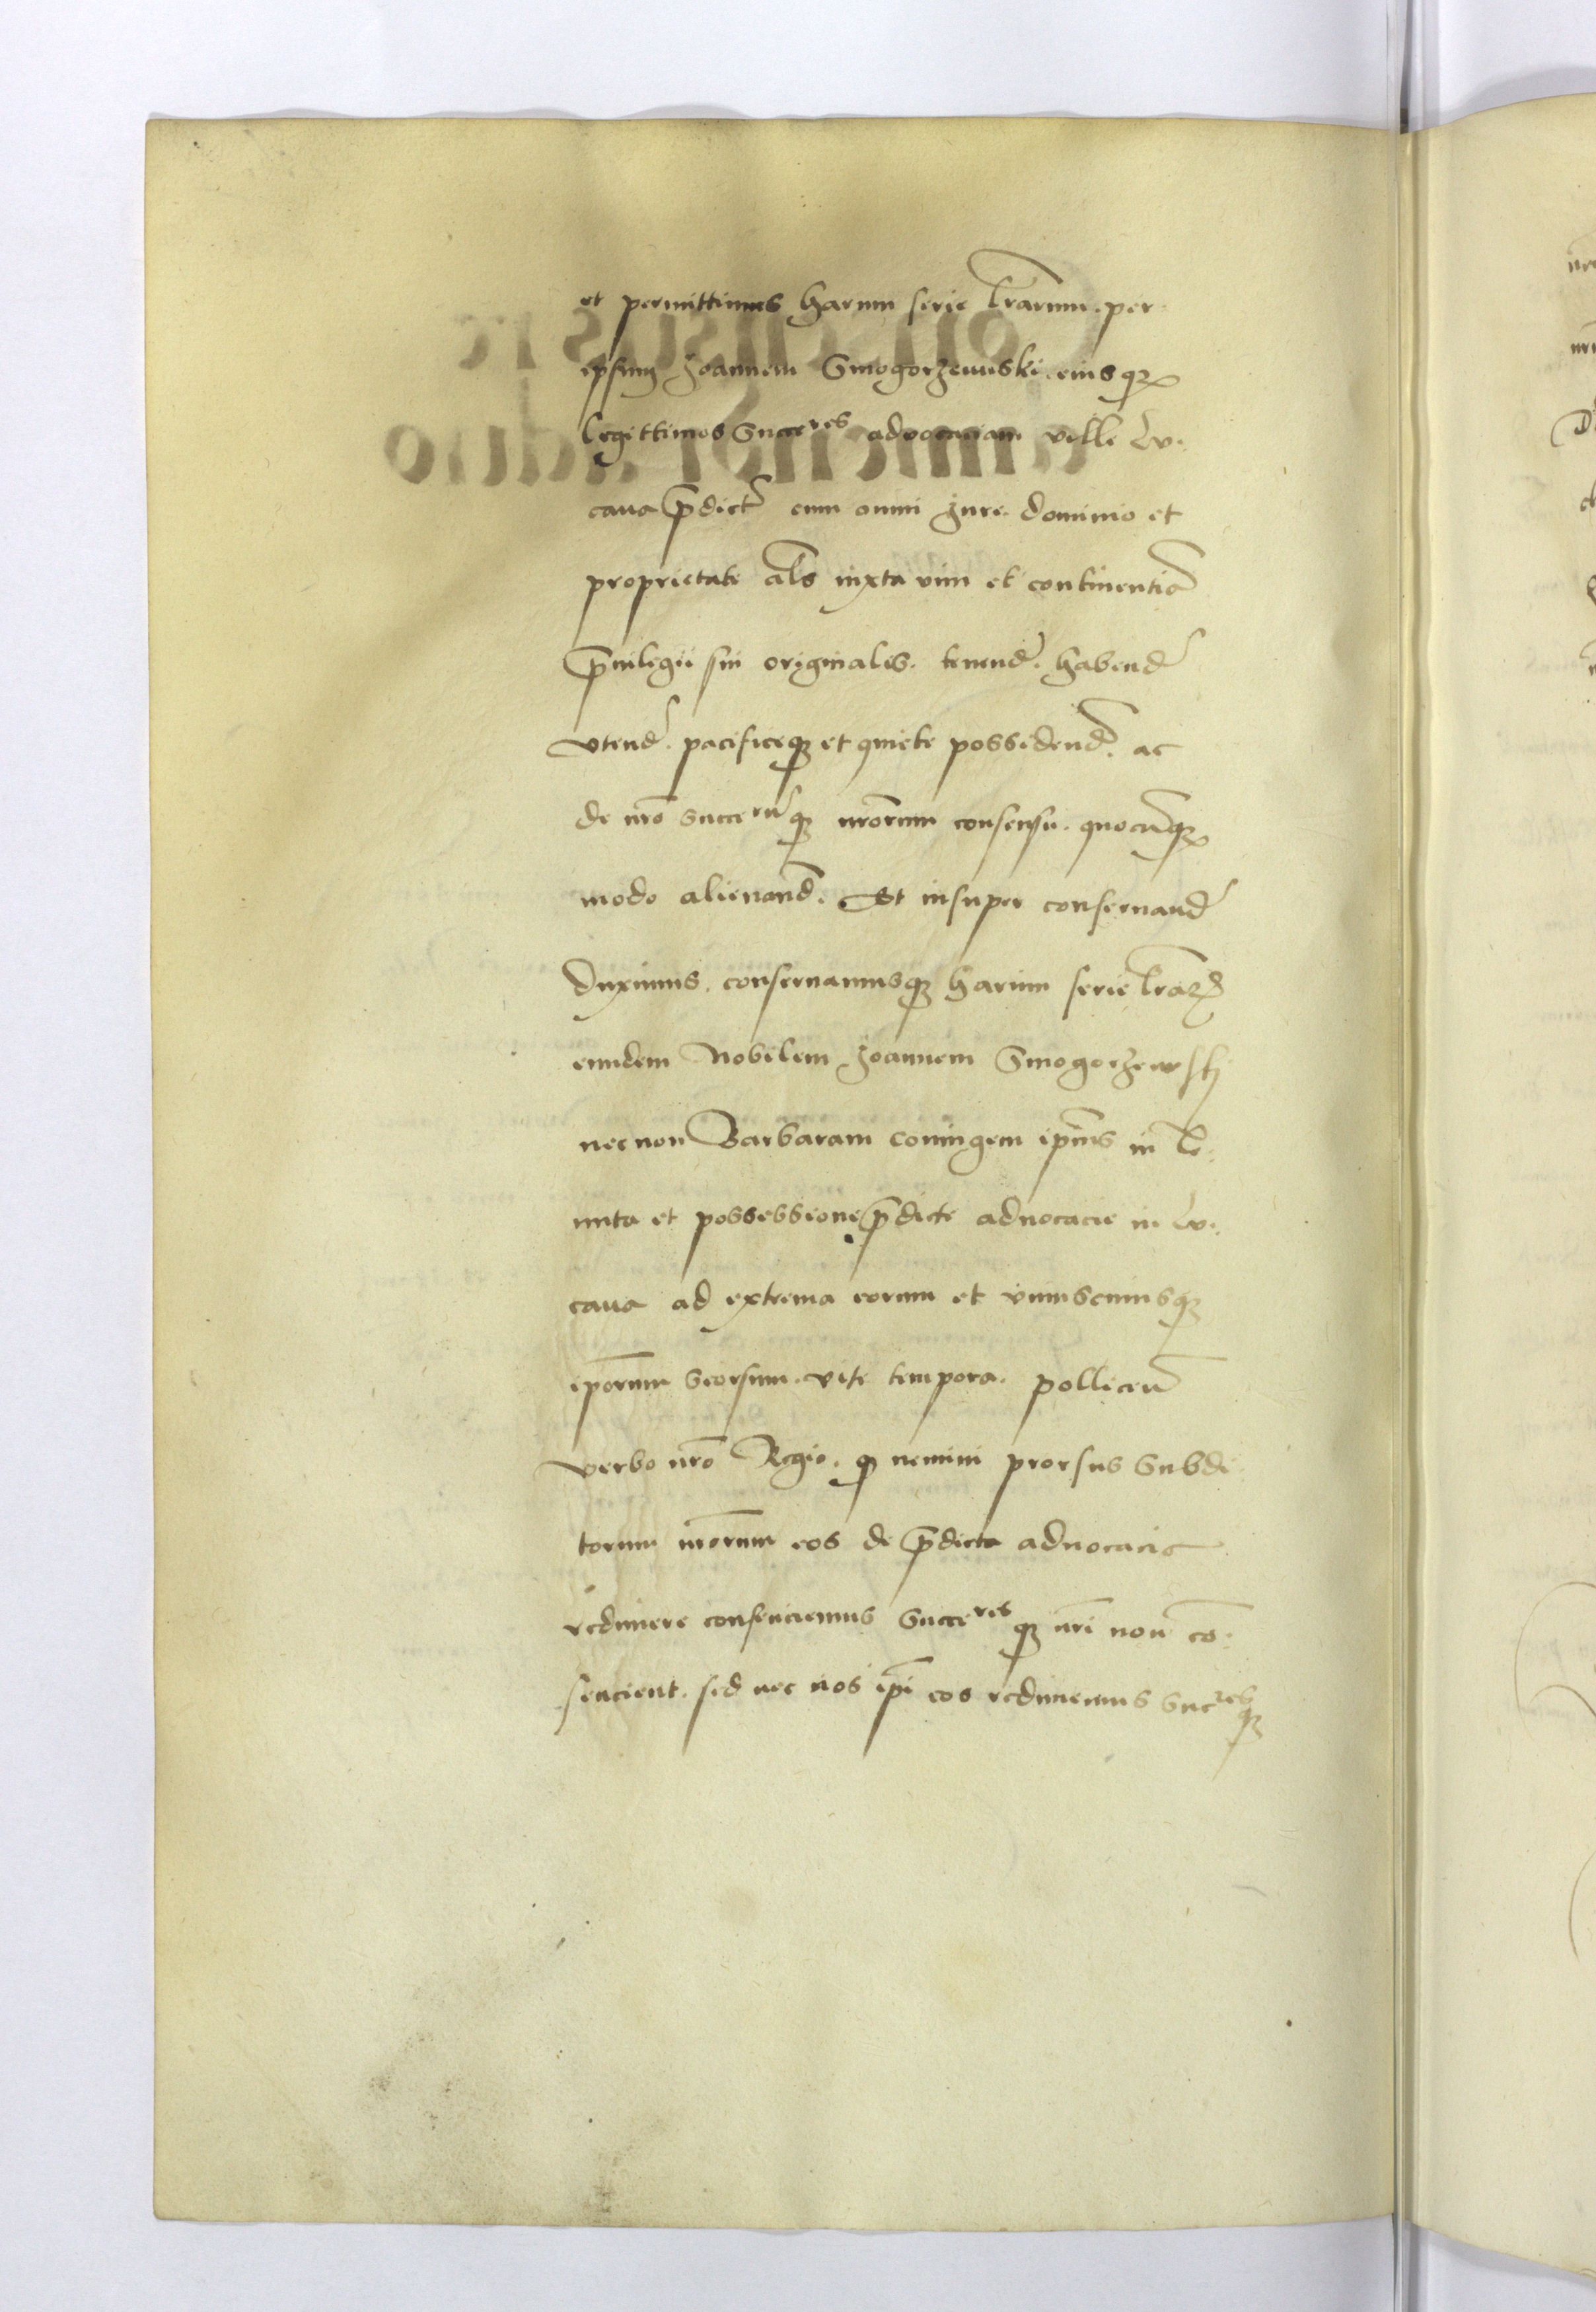 et permittimus harum serie lrarum. per
ipsum Joannem Smogorzewski. eiusq3
legittimos Succeres advocaciam ville Lu.
cava pdict cum omni Jure dominio et
proprietate als iuxta vim et continentia
pvilegii sui originalis. tenend. habend
vtend. pacificeq3 et quiete possidend. ac
de nro succeruq3 nrorum consensu. quocuq3
modo alienand. Et insuper conservand
duximus. conservamusq3 harum serie lraꝝ
eundem Nobilem Joannem Smogorzewskj
necnon Barbaram coniugem ipius in te.
nuta et possessione pdicte advocacie in Lu.
cava ad extrema eorum et vniuscuiusq3
iporum Seorsum. vite tempora. polliceti
verbo nro Regio. q nemini prorsus Subdi
torum nrorum eos de pdicta advocacia
redimere consenciemus Succeresq3 nri non co.
sencient. sed nec nos ipi eos redimemus Sucresq3